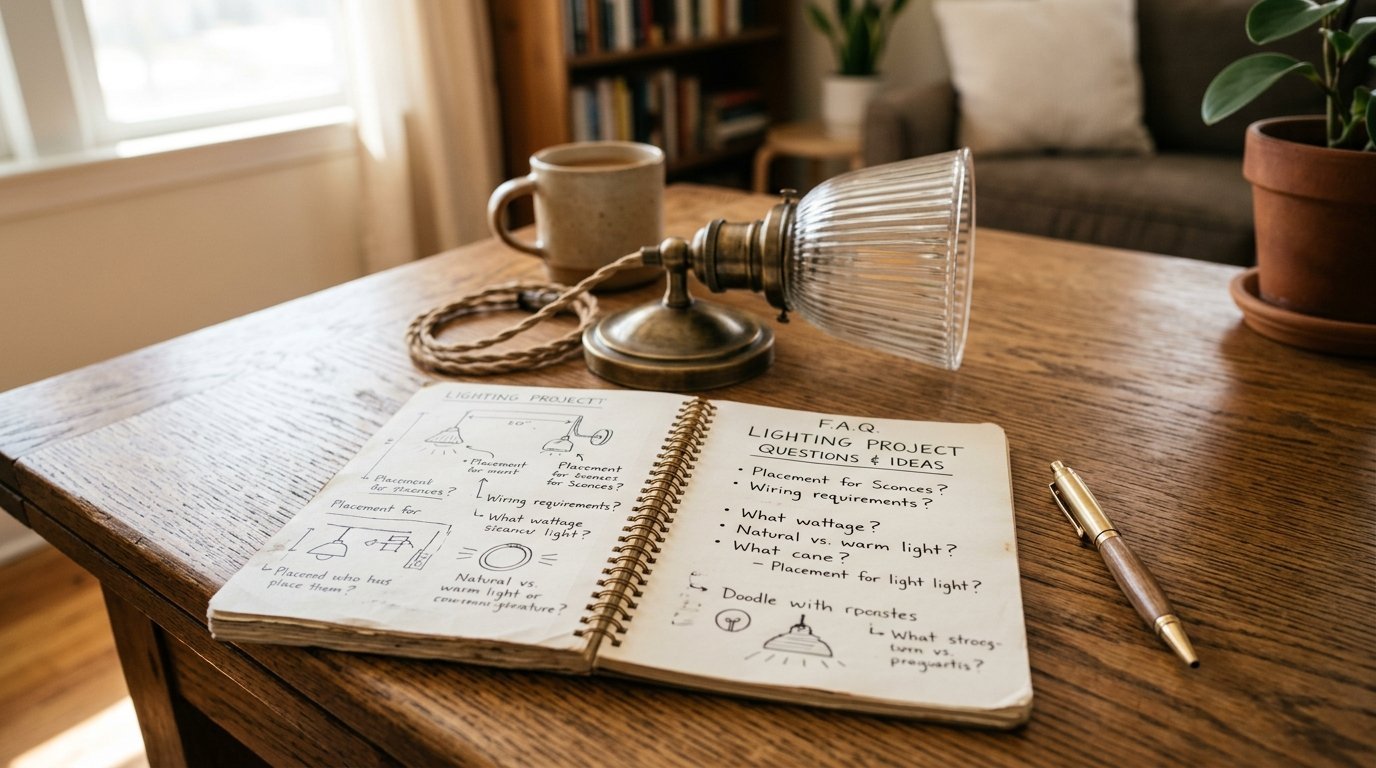 LIGHTING PROJECT?
• Placement
for
Placement
for
for Sconces?
Placement
for
?
Wiring requirements?
What wattage
light?
Placement for
Placend who has
place them?
Natural vs.
warm light or
?
F.A.Q.
LIGHTING PROJECT
QUESTIONS & IDEAS
• Placement for Sconces?
• Wiring requirements?
• What wattage?
• Natural vs. warm light?
• What cane?
– Placement for light light?
Doodle with rpostes
What
vs.
?